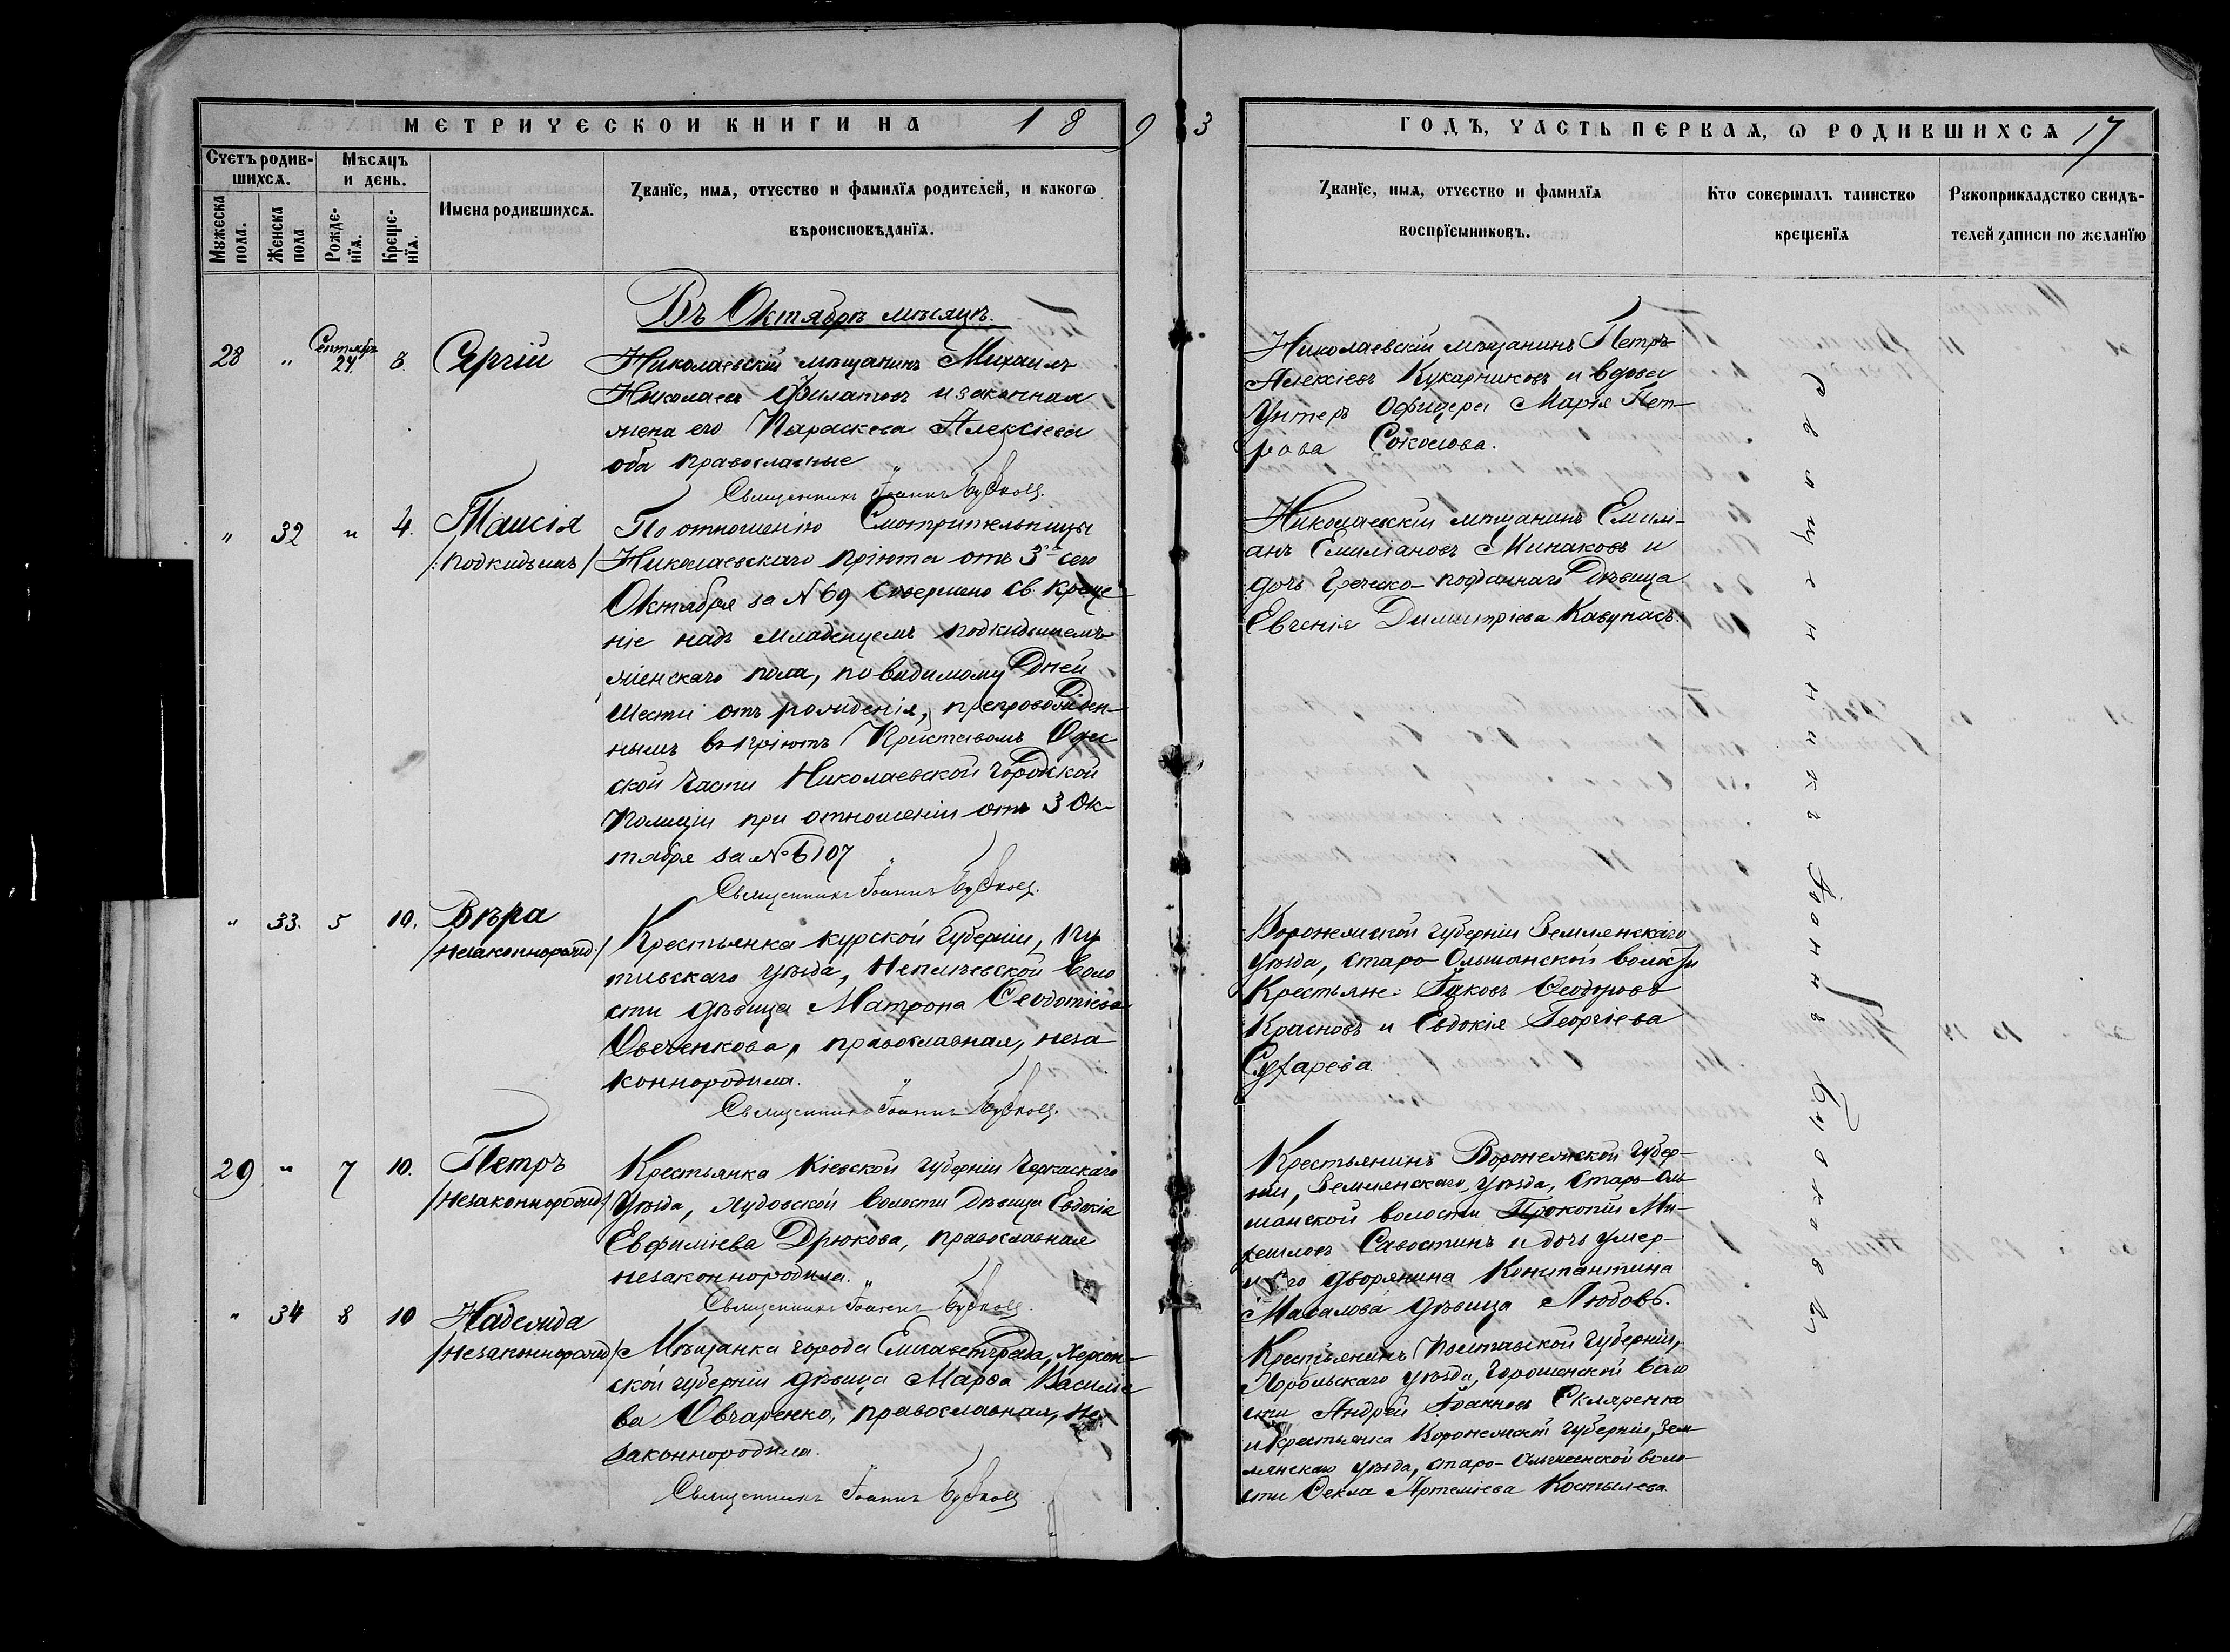 МЕТРИЧЕСКОЙ КНИГИ НА 1893
ГОДЪ, ЧАСТЬ ПЕРВАЯ, Ѡ РОДИВШИХСЯ 17
Счетъ родив-
шихся.
Мѣсяцъ
и день.
Мужеска
пола.
Женска
пола
Рожде-
нїя.
Креще-
нїя.
Имена родившихся.
Званїе, имя, отчество и фамилїя родителей, и какогѡ
вѣроисповѣданїя.
Званїе, имя, отчество и фамилїя
воспрїемниковъ.
Кто совершалъ таинство
крещенїя
Рукоприкладство свидѣ-
телей записи по желанїю
Въ Октябрѣ мѣсяцѣ.
28 " Сентябр 24 8. Сергій
Николаевскій мѣщанинъ Михаилъ
Николаевъ Филатовъ и законная
жена его Параскева Алексіева
оба православные
Священникъ Іоаннъ Будков
Николаевскій мѣщанинъ Петръ
Алексіевъ Кукарниковъ и вдова
Унтеръ Офицера Марія Пет-
рова Соколова.
" 32 " 4. Таисія
/:подкидышъ/
По отношенію Смотрительницы
Николаевскаго пріюта отъ 3го сего
Октября за №69 совершено Св. Креще
ніе надъ младенцемъ подкидышемъ
женскаго пола, по видимому дней
шести отъ рожденія, препровожден-
нымъ въ пріютъ Приставомъ Одес
ской части Николаевской городской
Полиціи при отношеніи отъ 3 Ок-
тября за №6107
Священникъ Іоаннъ Будков
Николаевскій мѣщанинъ Емилі-
анъ Емиліановъ Минаковъ и
дочь Греческо-подданнаго Дѣвица
Евгенія Димитріева Кавунасъ.
" 33. 5 10. Вѣра
/незаконнорожд:/
Крестьянка Курской губерніи, Пу
тивскаго уѣзда, волo
сти дѣвица Матрона Ѳеодотіева
Овеченкова, православная, неза
коннородила.
Священникъ Іоаннъ Будков
Воронежской губерніи Землянскаго
уѣзда, Старо-Ольшанской волости
Крестьяне: Іаковъ Ѳеодоровъ
Красновъ и Евдокія Георгіева
29 " 7 10. Петръ
/незаконнорожд/
Крестьянка Кіевской губерніи Черкаскаго
Уѣзда, волости Дѣвица Евдокія
Евфиміева Дрюкова, православная
незаконнородила.
Священникъ Іоаннъ Будков
Крестьянинъ Воронежской губер-
ніи, Землянскаго уѣзда, Старо-Оль
шанской волости Прокопій Ми-
Савостинъ и дочь умер-
шаго дворянина Константина
Масалова дѣвица Любовь.
" 34 8 10 Надежда
/незаконнорожд/
Мѣщанка города Елисаветграда, Херсон-
ской губерніи дѣвица Марѳа Василіе
ва Овчаренко, православная, не
законнородила.
Священникъ Іоаннъ Будков
Крестьянинъ Полтавской губерніи,
Хорольскаго уѣзда, Горошенской воло
сти Андрей Іоанновъ Скляренко
и крестьянка Воронежской губерніи, Зем
лянскаго уѣзда, Старо-Ольшанской воло-
сти Ѳекла Артеміева Костылева.
Священникъ Іоаннъ